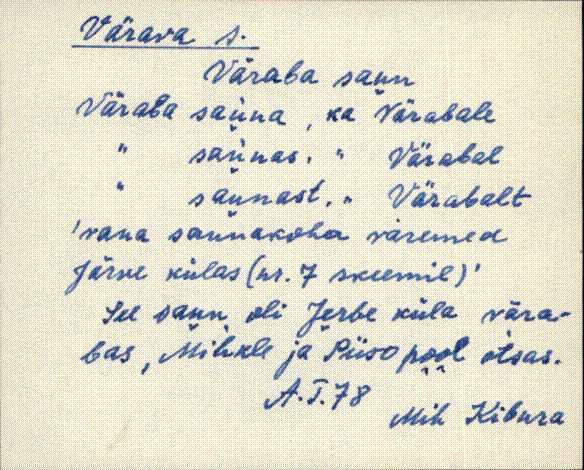 Värava s.
Väraba saun
Väraba sauna, ka Värabale
" saunas, " Värabal
" saunast, " Värabalt
'vana saunakoha varemed
Järve külas (nr. 7 skeemil)'
See saun oli Jerbe küla vära-
bas, Mihkle ja Piiso pool otsas.
A.T.78
Mih Kibura